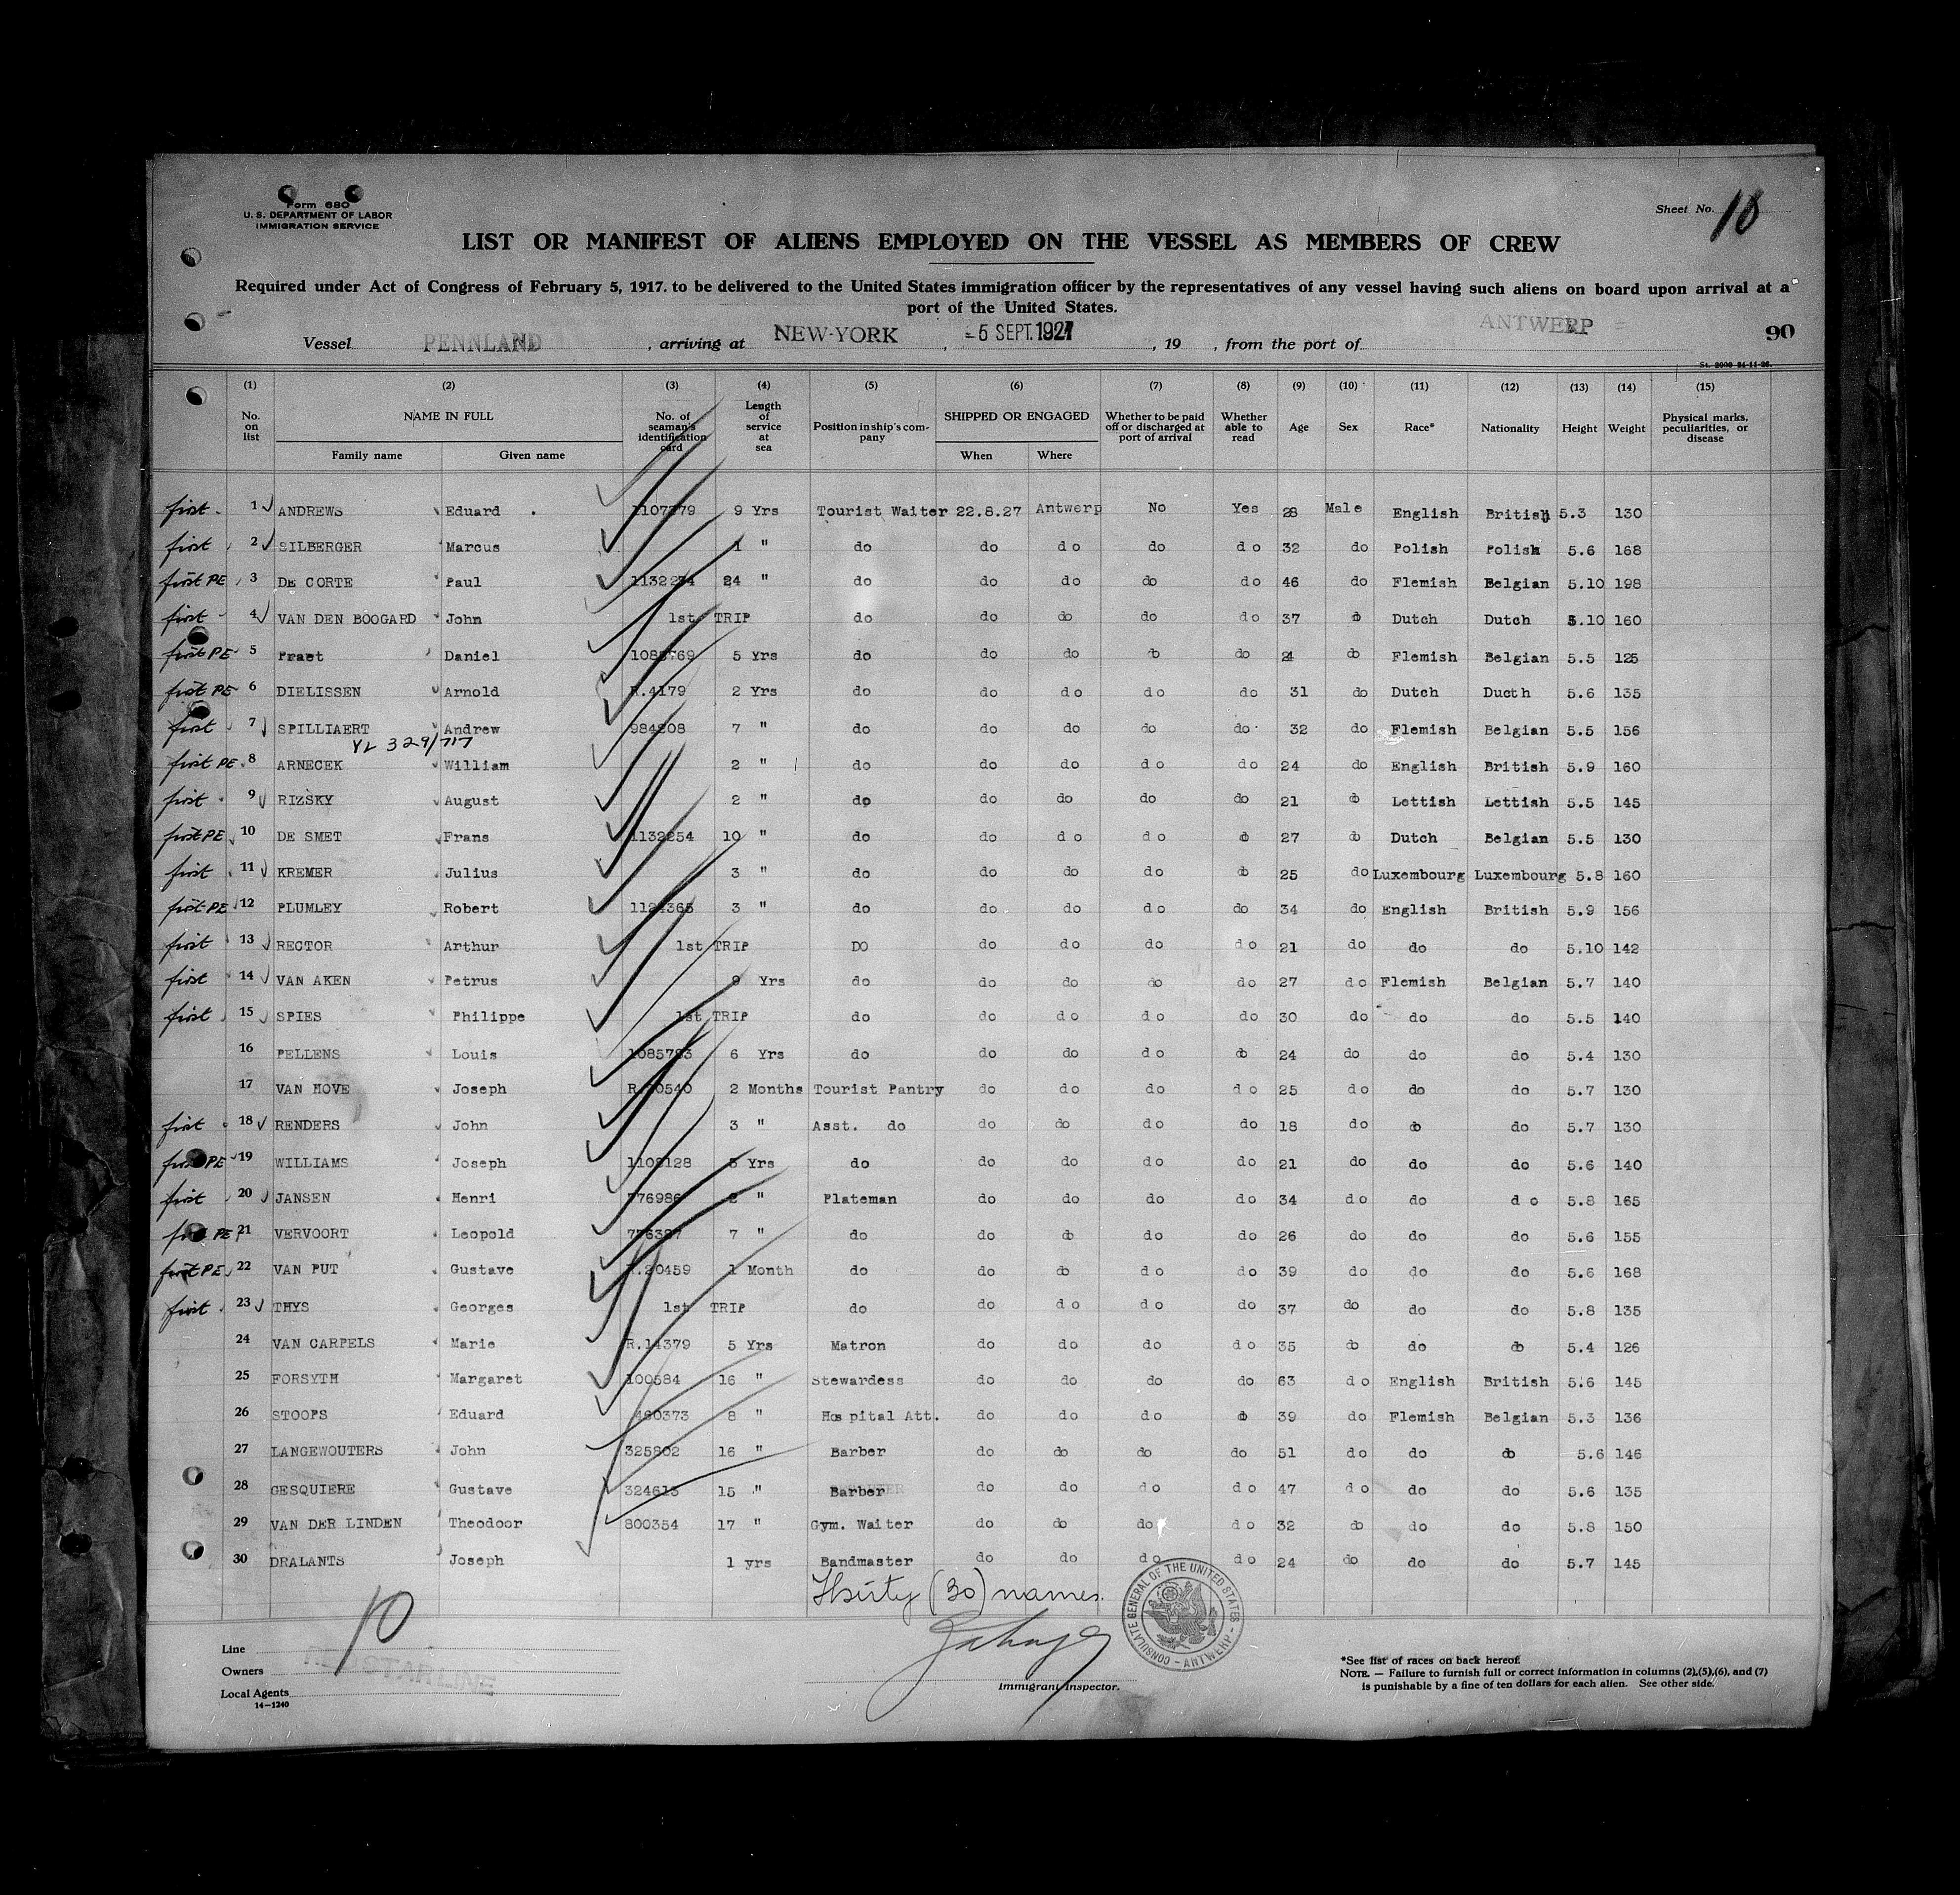 Form 680
U. S. DEPARTMENT OF LABOR
IMMIGRATION SERVICE
Sheet No. 10
LIST OR MANIFEST OF ALIENS EMPLOYED ON THE VESSEL AS MEMBERS OF CREW
Required under Act of Congress of February 5, 1917. to be delivered to the United States immigration officer by the representatives of any vessel having such aliens on board upon arrival at a
port of the United States.
Vessel PENNLAND , arriving at NEW-YORK , - 5 SEPT. 1927 , 19 , from the port of ANTWERP 90
St. 2000 24-11-26.
(1) (2) (3) (4) (5) (6) (7) (8) (9) (10) (11) (12) (13) (14) (15)
No. on list NAME IN FULL Family name Given name No. of seaman's identification card Length of service at sea Position in ship's company SHIPPED OR ENGAGED When Where Whether to be paid off or discharged at port of arrival Whether able to read Age Sex Race* Nationality Height Weight Physical marks, peculiarities, or disease
first 1 ANDREWS Eduard 1107379 9 Yrs Tourist Waiter 22.8.27 Antwerp No Yes 28 Male English British 5.3 130
first 2 SILBERGER Marcus 1 " do do do do do 32 do Polish Polish 5.6 168
first PE 3 DE CORTE Paul 24 " do do do do do 46 do Flemish Belgian 5.10 198
first 4 VAN DEN BOOGARD John 1st TRIP do do do do do 37 do Dutch Dutch 5.10 160
first PE 5 Praet Daniel 5 Yrs do do do do do 24 do Flemish Belgian 5.5 125
first PE 6 DIELISSEN Arnold R.4179 2 Yrs do do do do do 31 do Dutch Ducth 5.6 135
first 7 SPILLIAERT Andrew 984808 7 " do do do do do 32 do Flemish Belgian 5.5 156
YL 329/717
first PE 8 ARNECEK William 2 " do do do do do 24 do English British 5.9 160
first 9 RIZSKY August 2 " do do do do do 21 do Lettish Lettish 5.5 145
first PE 10 DE SMET Frans 1132254 10 " do do do do do 27 do Dutch Belgian 5.5 130
first 11 KREMER Julius 3 " do do do do do 25 do Luxembourg Luxembourg 5.8 160
first PE 12 PLUMLEY Robert 1124365 3 " do do do do do 34 do English British 5.9 156
first 13 RECTOR Arthur 1st TRIP DO do do do do 21 do do do 5.10 142
first 14 VAN AKEN Petrus 9 Yrs do do do do do 27 do Flemish Belgian 5.7 140
first 15 SPIES Philippe 1st TRIP do do do do do 30 do do do 5.5 140
16 PELLENS Louis 1085793 6 Yrs do do do do do 24 do do do 5.4 130
17 VAN HOVE Joseph 2 Months Tourist Pantry do do do do 25 do do do 5.7 130
first 18 RENDERS John 3 " Asst. do do do do do 18 do do do 5.7 130
first PE 19 WILLIAMS Joseph 5 Yrs do do do do do 21 do do do 5.6 140
first 20 JANSEN Henri 2 " Plateman do do do do 34 do do do 5.8 165
first PE 21 VERVOORT Leopold 7 " do do do do do 26 do do do 5.6 155
first PE 22 VAN PUT Gustave R.20459 1 Month do do do do do 39 do do do 5.6 168
first 23 THYS Georges 1st TRIP do do do do do 37 do do do 5.8 135
24 VAN CARPELS Marie R.14379 5 Yrs Matron do do do do 35 do do do 5.4 126
25 FORSYTH Margaret 100584 16 " Stewardess do do do do 63 do English British 5.6 145
26 STOOPS Eduard 480373 8 " Hospital Att. do do do do 39 do Flemish Belgian 5.3 136
27 LANGEWOUTERS John 325802 16 " Barber do do do do 51 do do do 5.6 146
28 GESQUIERE Gustave 324613 15 " Barber do do do do 47 do do do 5.6 135
29 VAN DER LINDEN Theodoor 800354 17 " Gym. Waiter do do do do 32 do do do 5.8 150
30 DRALANTS Joseph 1 yrs Bandmaster do do do do 24 do do do 5.7 145
Thirty (30) names.
CONSULATE GENERAL OF THE UNITED STATES - ANTWERP -
10
Line
Owners
Local Agents
14-1240
Immigrant Inspector.
*See list of races on back hereof.
NOTE. — Failure to furnish full or correct information in columns (2),(5),(6), and (7)
is punishable by a fine of ten dollars for each alien. See other side.